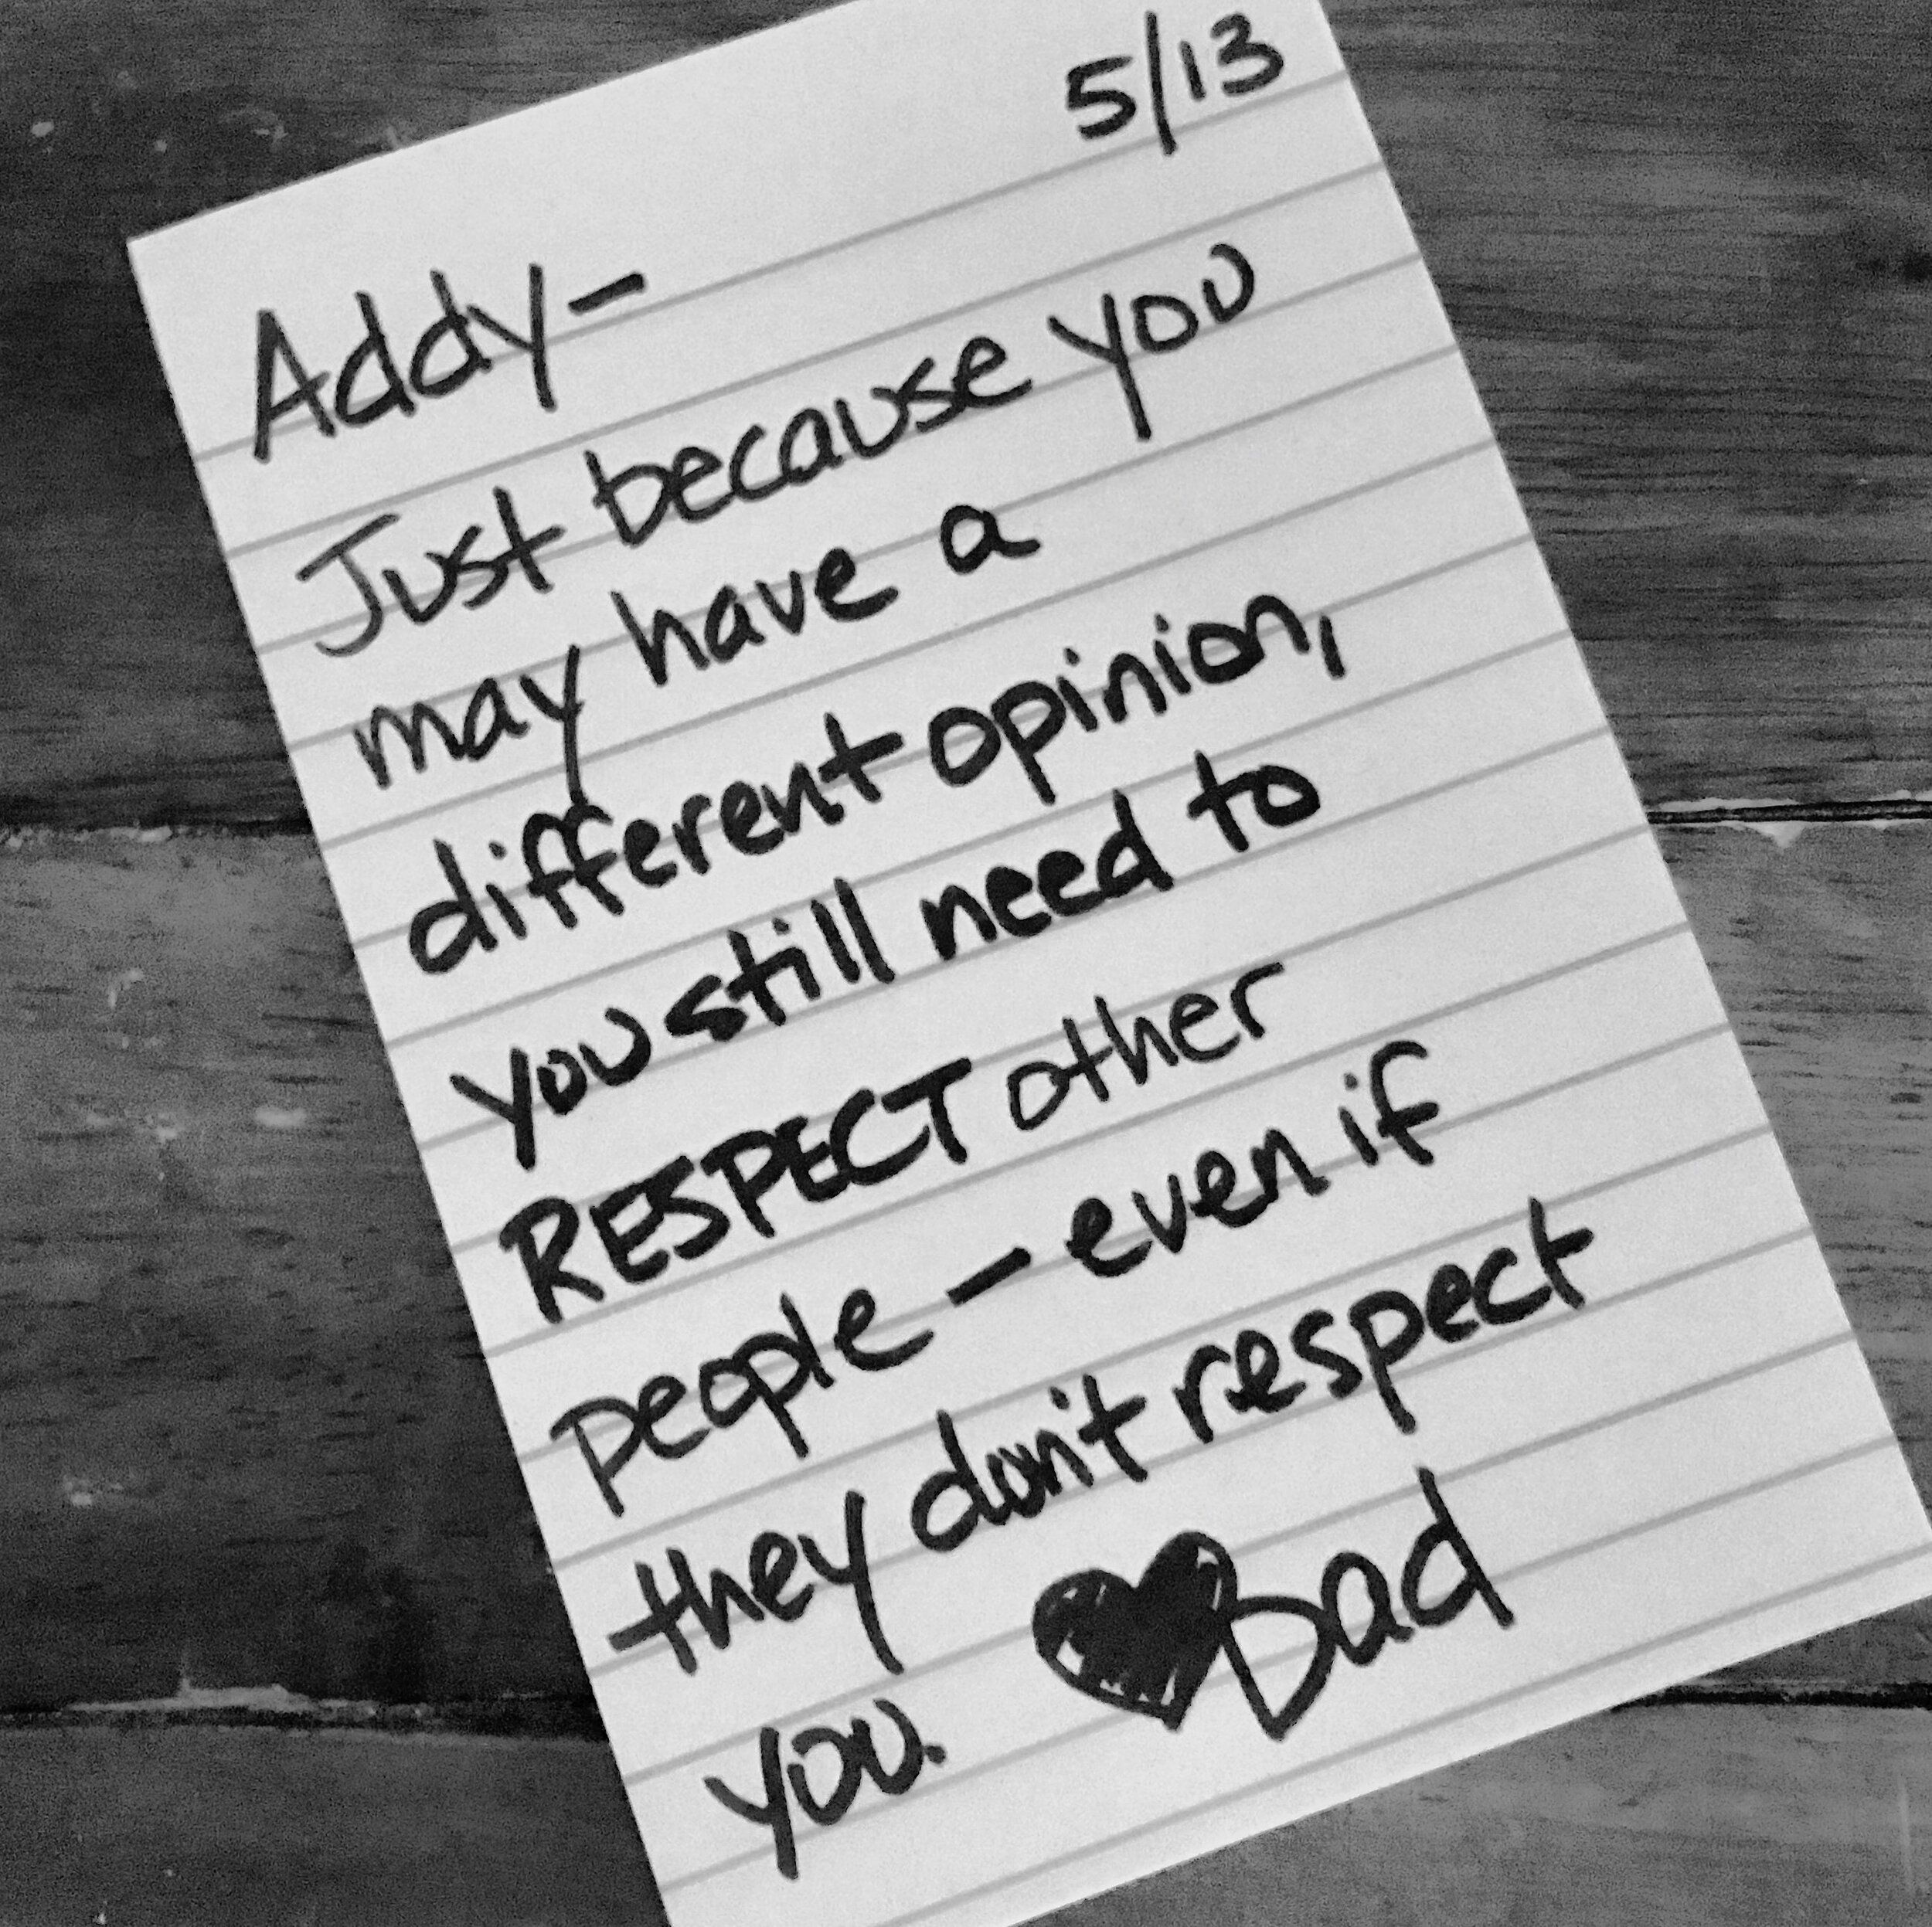 5/13
Addy-
Just because you
may have a
different opinion,
you still need to
RESPECT other
people - even if
they don't respect
you. ♥Dad